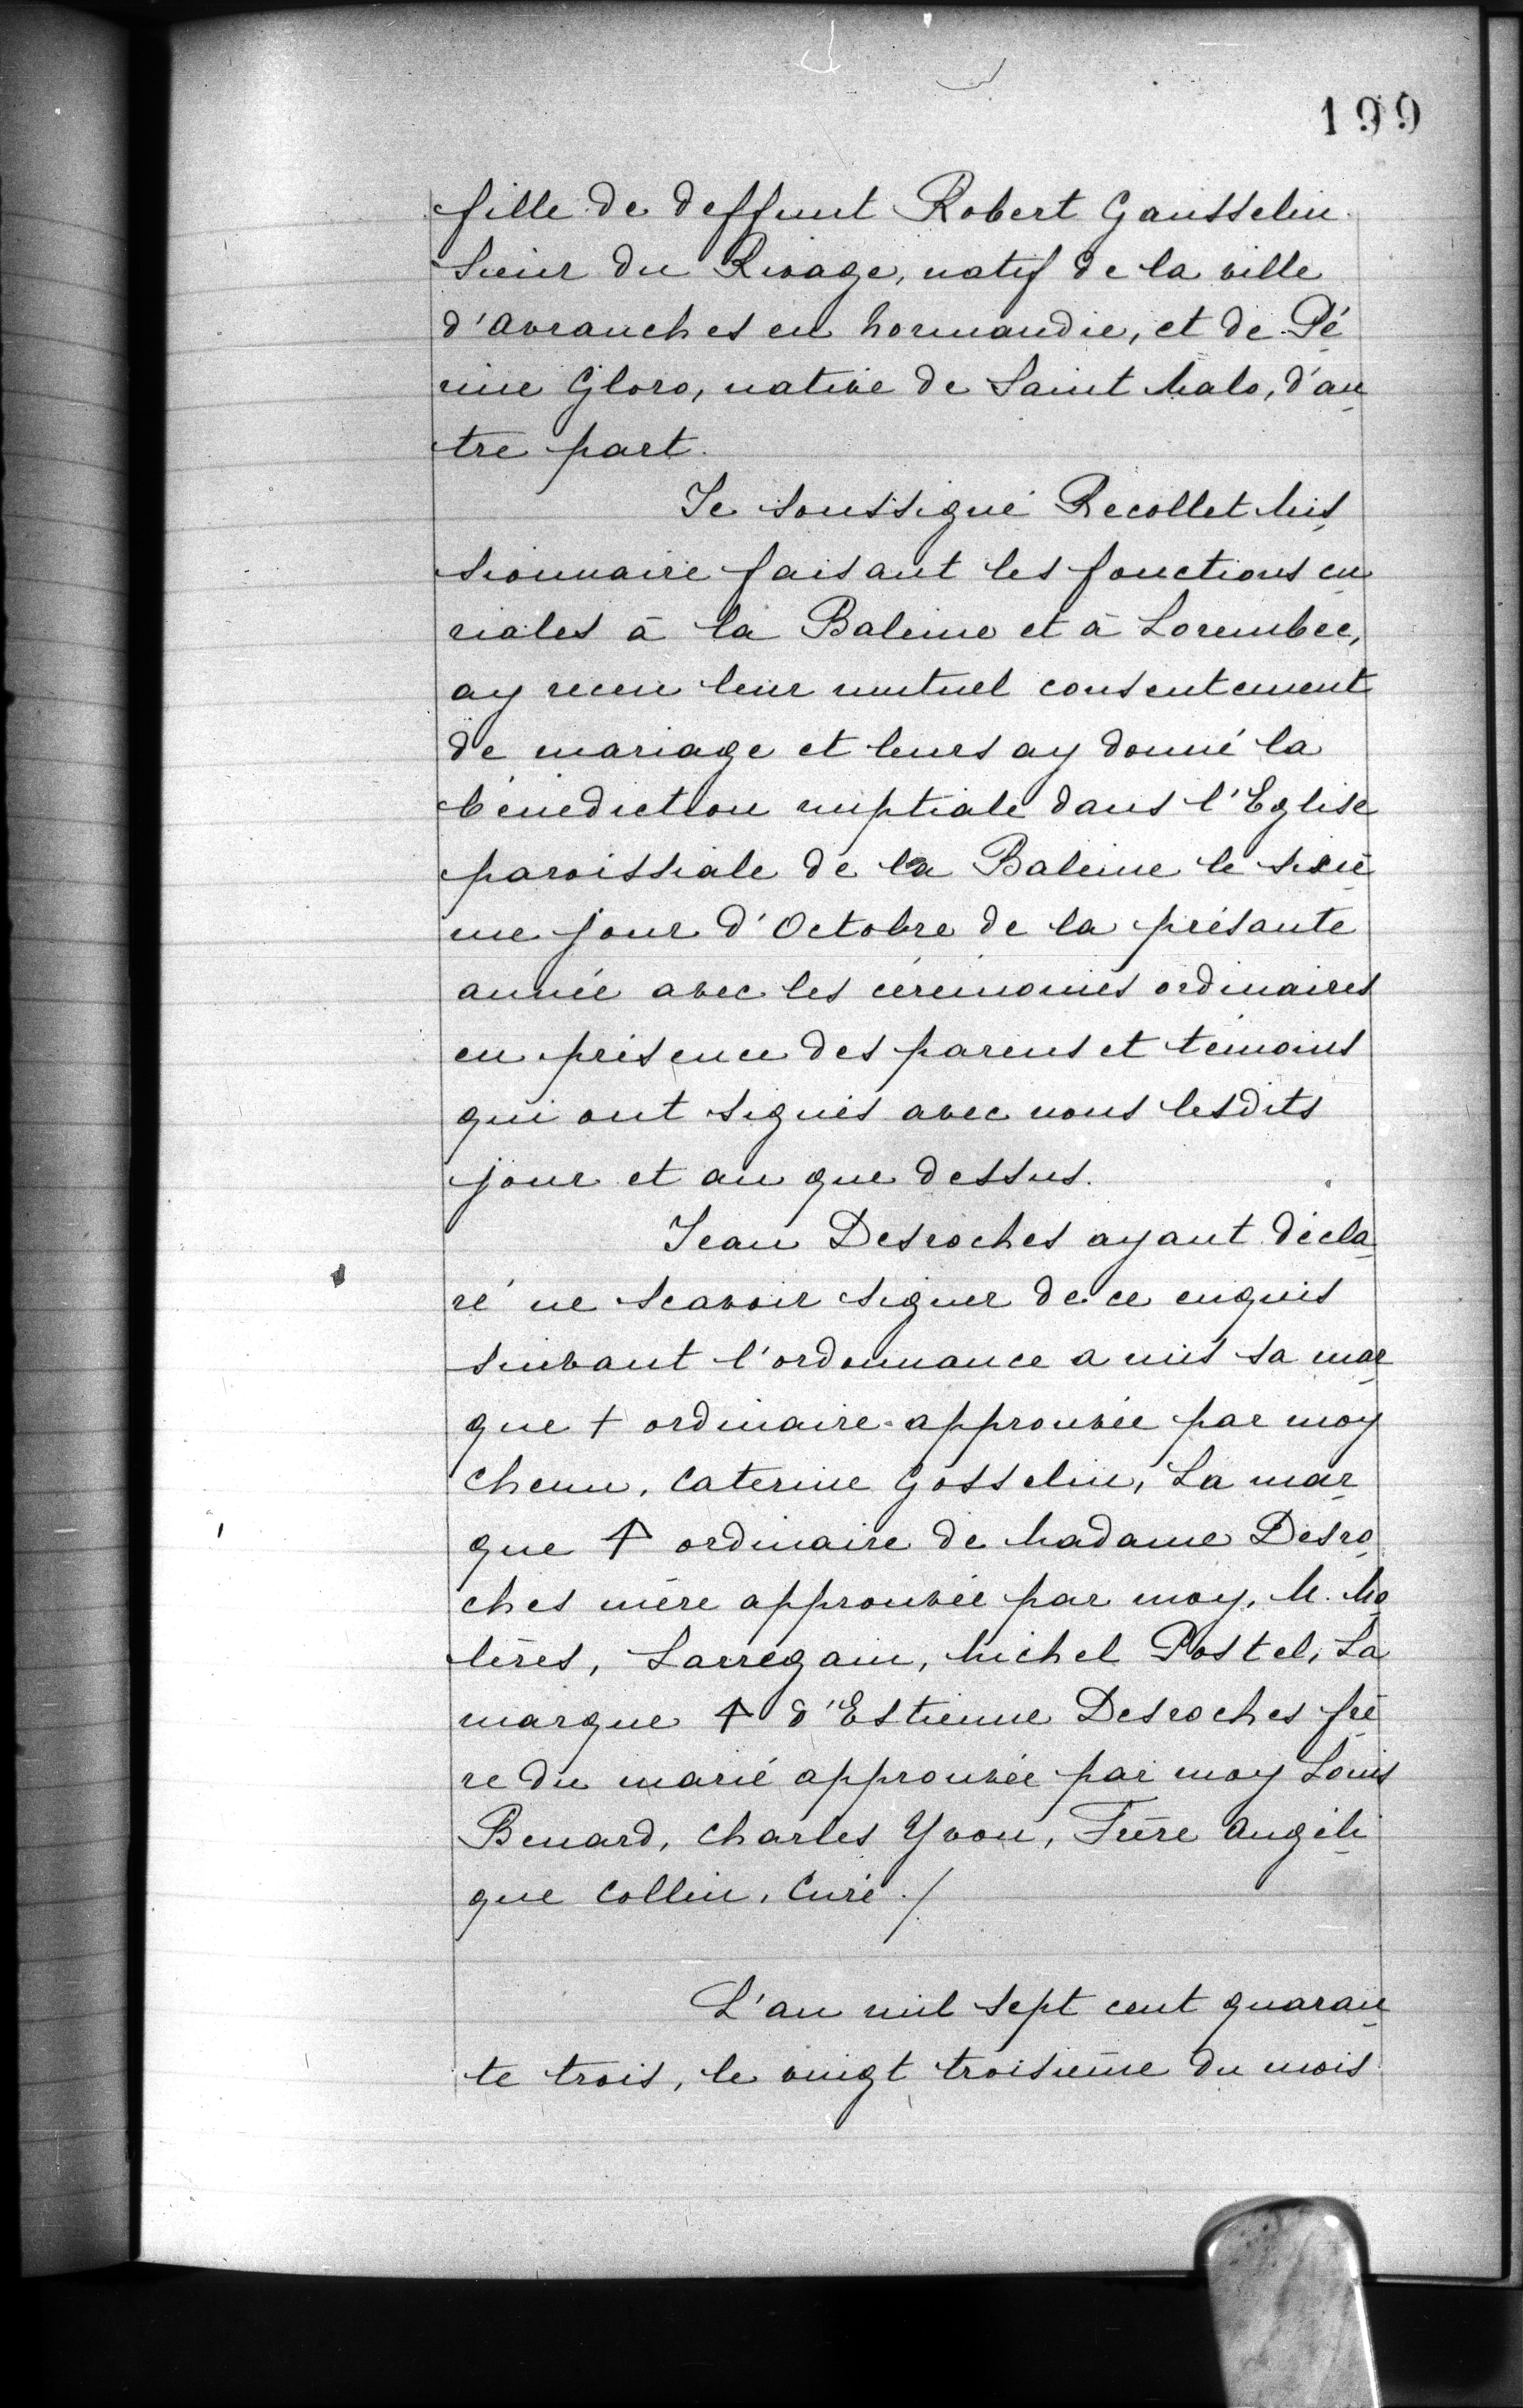 199
fille de deffunt Robert Gausselin
sieur du Rivage, natif de la ville
d'Avranches en Normandie, et de Pé
rine Gloro, native de Saint Malo, d'au
tre part.
Je soussigné Recollet Mis
sionnaire faisant les fonctions cu
riales à la Baleine et à Lorembec,
ay receu leur mutuel consentement
de mariage et leurs ay donné la
bénédiction nuptiale dans l'Eglise
paroissiale de la Baleine le sixiè
me jour d'Octobre de la présante
année avec les cérémonies ordinaires
en présence des parens et témoins
qui ont signés avec nous lesdits
jour et an que dessus.
Jean Desroches ayant décla
ré ne scavoir signer de ce enquis
suivant l'ordonnance a mis sa mar
que + ordinaire approuvée par moy
Chenu, Caterine Gosselin, La mar
que + ordinaire de Madame Desro
ches mère approuvée par moy, M. Mo
lères, Larregain, Michel Postel, La
marque + d'Estienne Desroches frè
re du marié approuvée par moy Louis
Benard, Charles Yvon, Frère Angéli
que Collin, Curé./
L'an mil sept cent quaran
te trois, le vingt troisième du mois